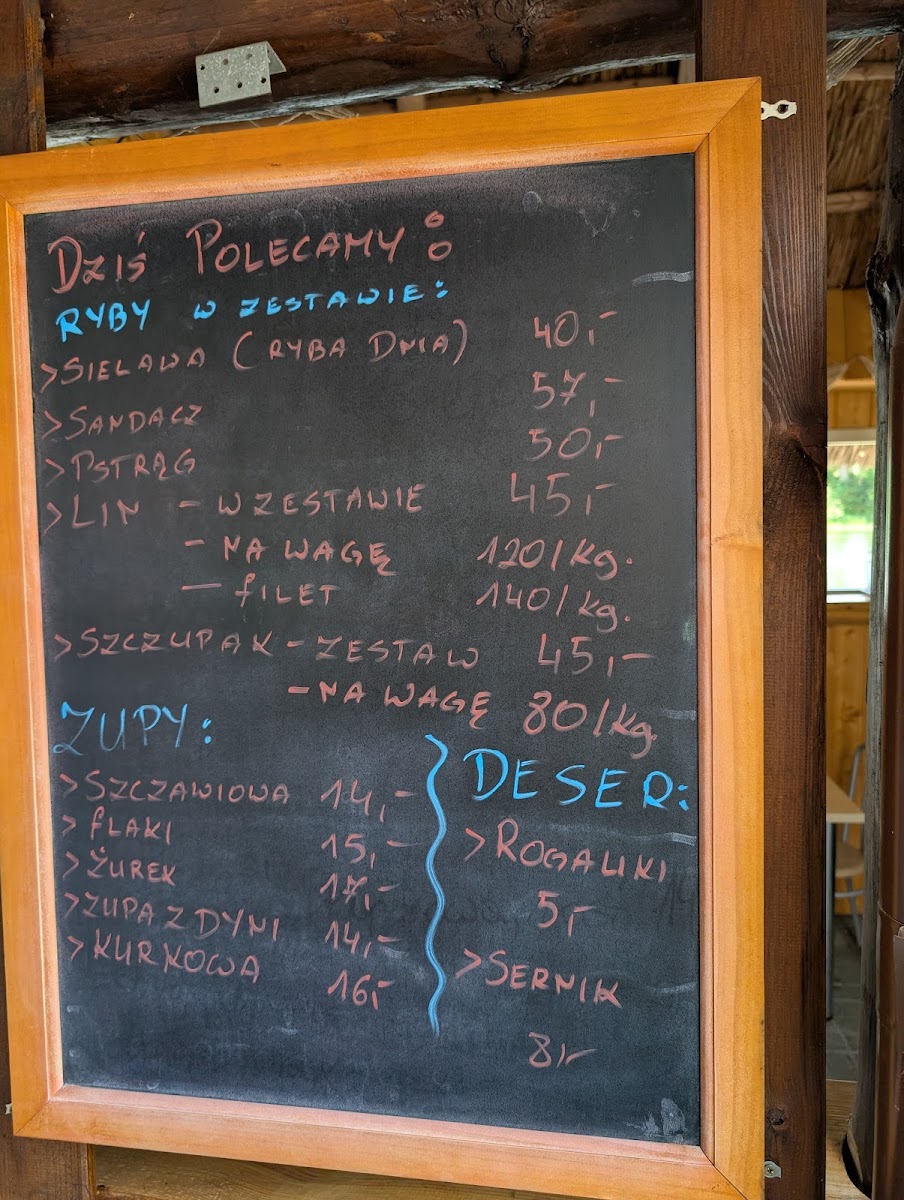 DZIŚ POLECAMY:
RYBY W ZESTAWIE:
>SIELAWA (RYBA DNIA) 40,-
>SANDACZ 57,-
>PSTRĄG 50,-
>LIN - W ZESTAWIE 45,-
- NA WAGĘ 120/kg.
- fILET 140/kg.
>SZCZUPAK - ZESTAW 45,-
- NA WAGĘ 80/kg.
ZUPY:
>SZCZAWIOWA 14,-
>fLAKI 15,-
>ŻUREK 17,-
>ZUPA Z DYNI 14,-
>KURKOWA 16,-
DESER:
>ROGALIKI
5,-
>SERNIK
8,-